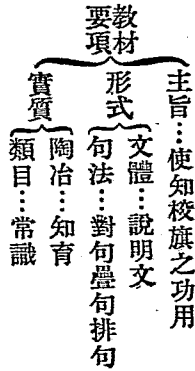 教材要項
主旨…使知校旗之功用
形式
文體…說明文
句法…對句疊句排句
實質
陶冶…知育
類目…常識